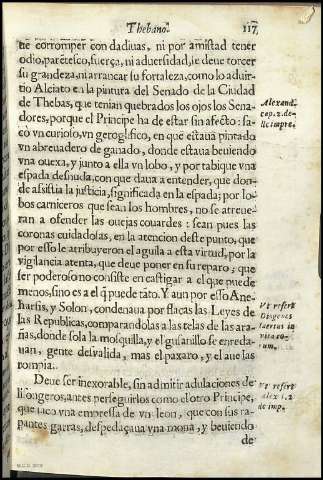 Thebano.
117
de corromper con dadiuas, ni por amistad tener
odio, parẽtesco, fuerça, ni aduersidad, se deue torcer
su grandeza, ni arrancar su fortaleza, como lo aduir-
tio Alciato en la pintura del Senado de la Ciudad
de Thebas, que tenian quebrados los ojos los Sena-
dores, porque el Principe ha de estar sin afecto: sa-
cò vn curioso, vn geroglifico, en que estaua pintado
vn abreuadero de ganado, donde estaua beuiendo
vna ouexa, y junto a ella vn lobo, y por tabique vna
espada desnuda, con que daua a entender, que don-
de asistia la justicia, significada en la espada; por lo-
bos carniceros que sean los hombres, no se atreue-
ran a ofender las ouejas couardes: sean pues las
coronas cuidadosas, en la atencion deste punto, que
por esso le atribuyeron el aguila a esta virtud, por la
vigilancia atenta, que deue poner en su reparo; que
ser poderoso no consiste en castigar a el que puede
menos, sino es a el q̃ puede tãto. Y aun por esso Ana-
harsis, y Solon, condenaua por flacas las Leyes de
las Republicas, comparandolas a las telas de las ara-
ñas, donde sola la mosquilla, y el gusanillo se enreda-
uan, gente desvalida, mas el paxaro, y el aue las
rompia.
Deue ser inexorable, sin admitir adulaciones de
lisongeros, antes perseguirlos como el otro Principe,
que saco vna empressa de vn leon, que con sus ra-
pantes garras, despedaçaua vna mona, y beuiendo
de
Alexand.
cap. 2. de-
lic impre.
Vt refert
Diogenes
Laertus in
vita eo-
rum.
Vt refert
Alex l. 2
de imp.